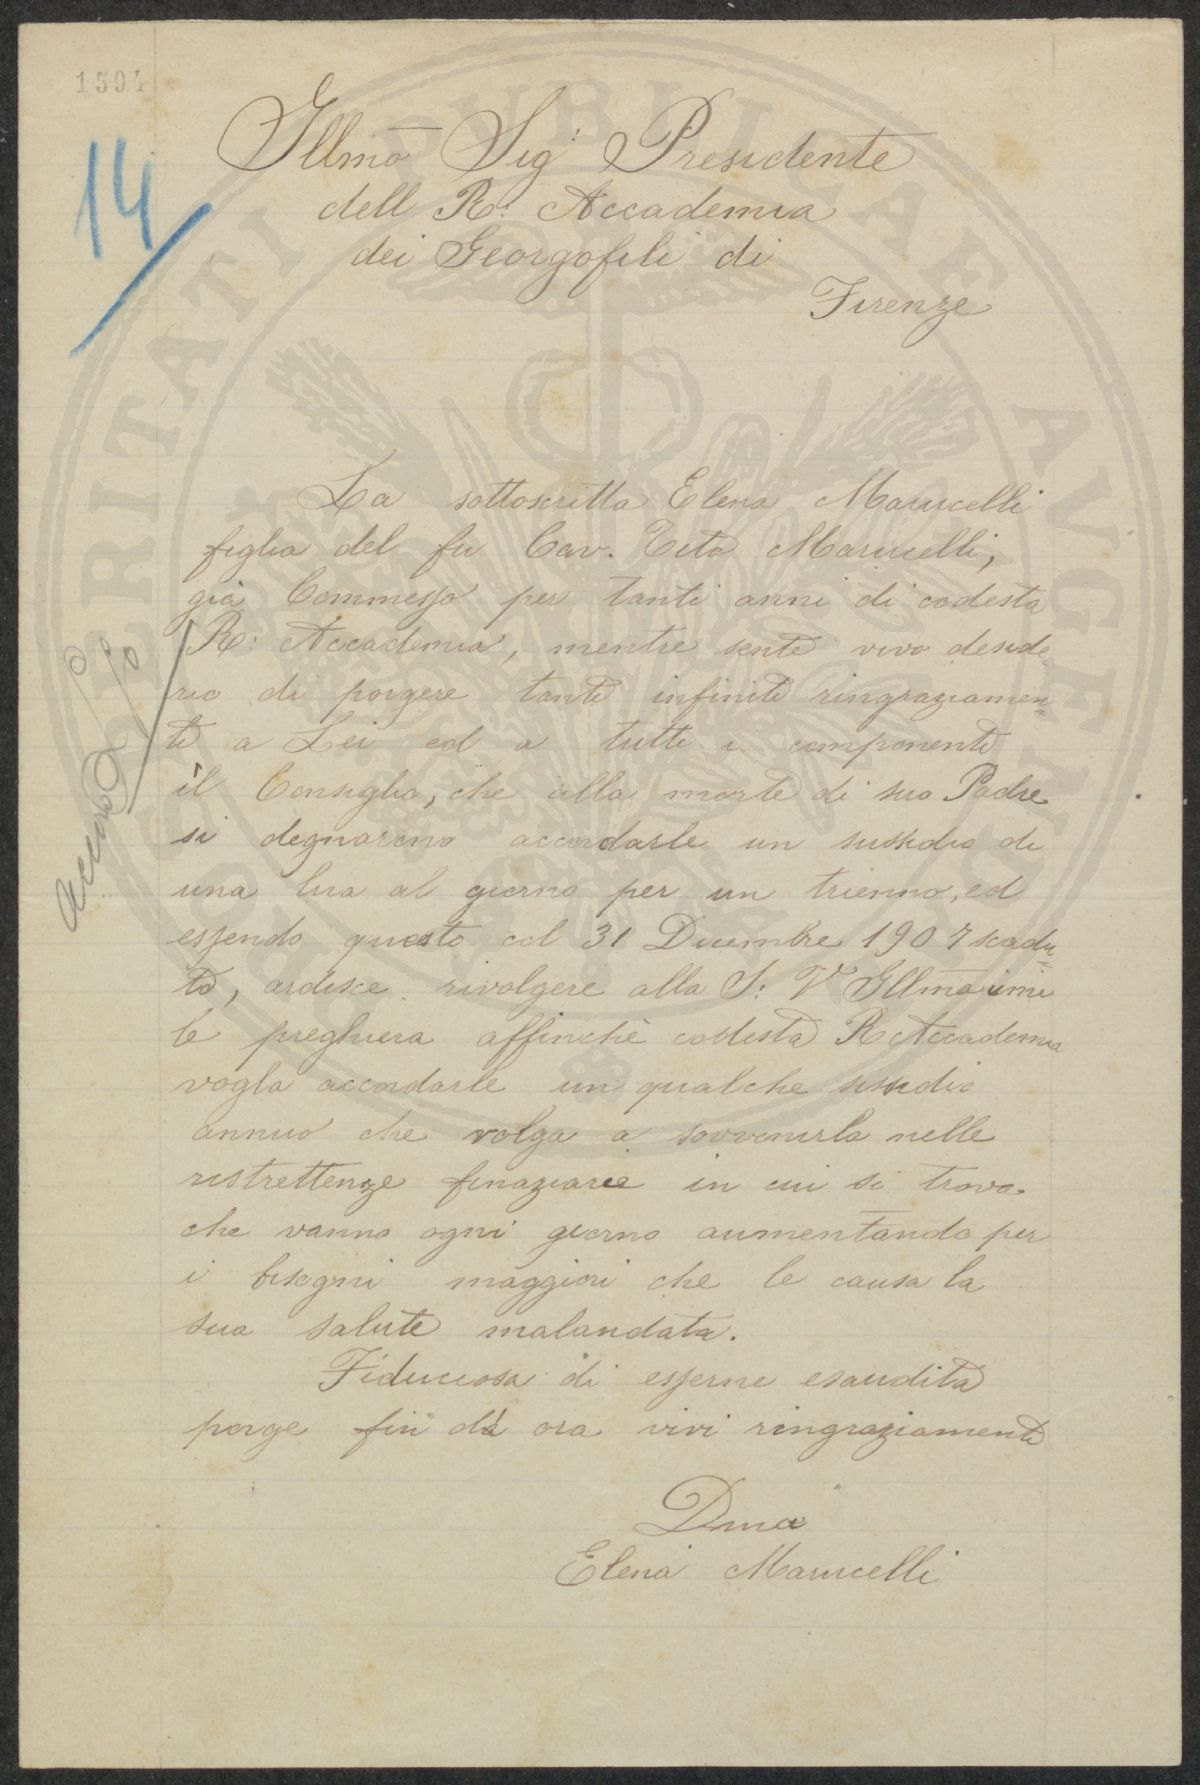 1504
14
Illmo Sig.r Presidente
dell R. Accademia
dei Georgofili di
Firenze
La sottoscritta Elena Marucelli
figlia del fu Cav. Tito Marucelli,
già Commesso per tanti anni di codesta
R: Accademia, mentre sente vivo deside-
rio di porgere tanti infiniti ringraziamen=
ti a Lei ed a tutti i componenti
il Consiglio, che alla morte di suo Padre
si degnarono accordarle un sussidio di
una lira al giorno per un triennio, ed
essendo questo col 31 Dicembre 1907 scadu=
to, ardisce rivolgere alla S: V Illma umi
le preghiera affinchè codesta R Accademia
voglia accordarle un qualche sussidio
annuo che volga a sovvenirla nelle
ristrettenze finaziarie in cui si trova
che vanno ogni giorno aumentando per
i bisogni maggiori che le causa la
sua salute malandata.
Fiduciosa di esserne esaudita
porge fin da ora vivi ringraziamenti
Dma
Elena Marucelli
PUBLICAE
AVGENDAE